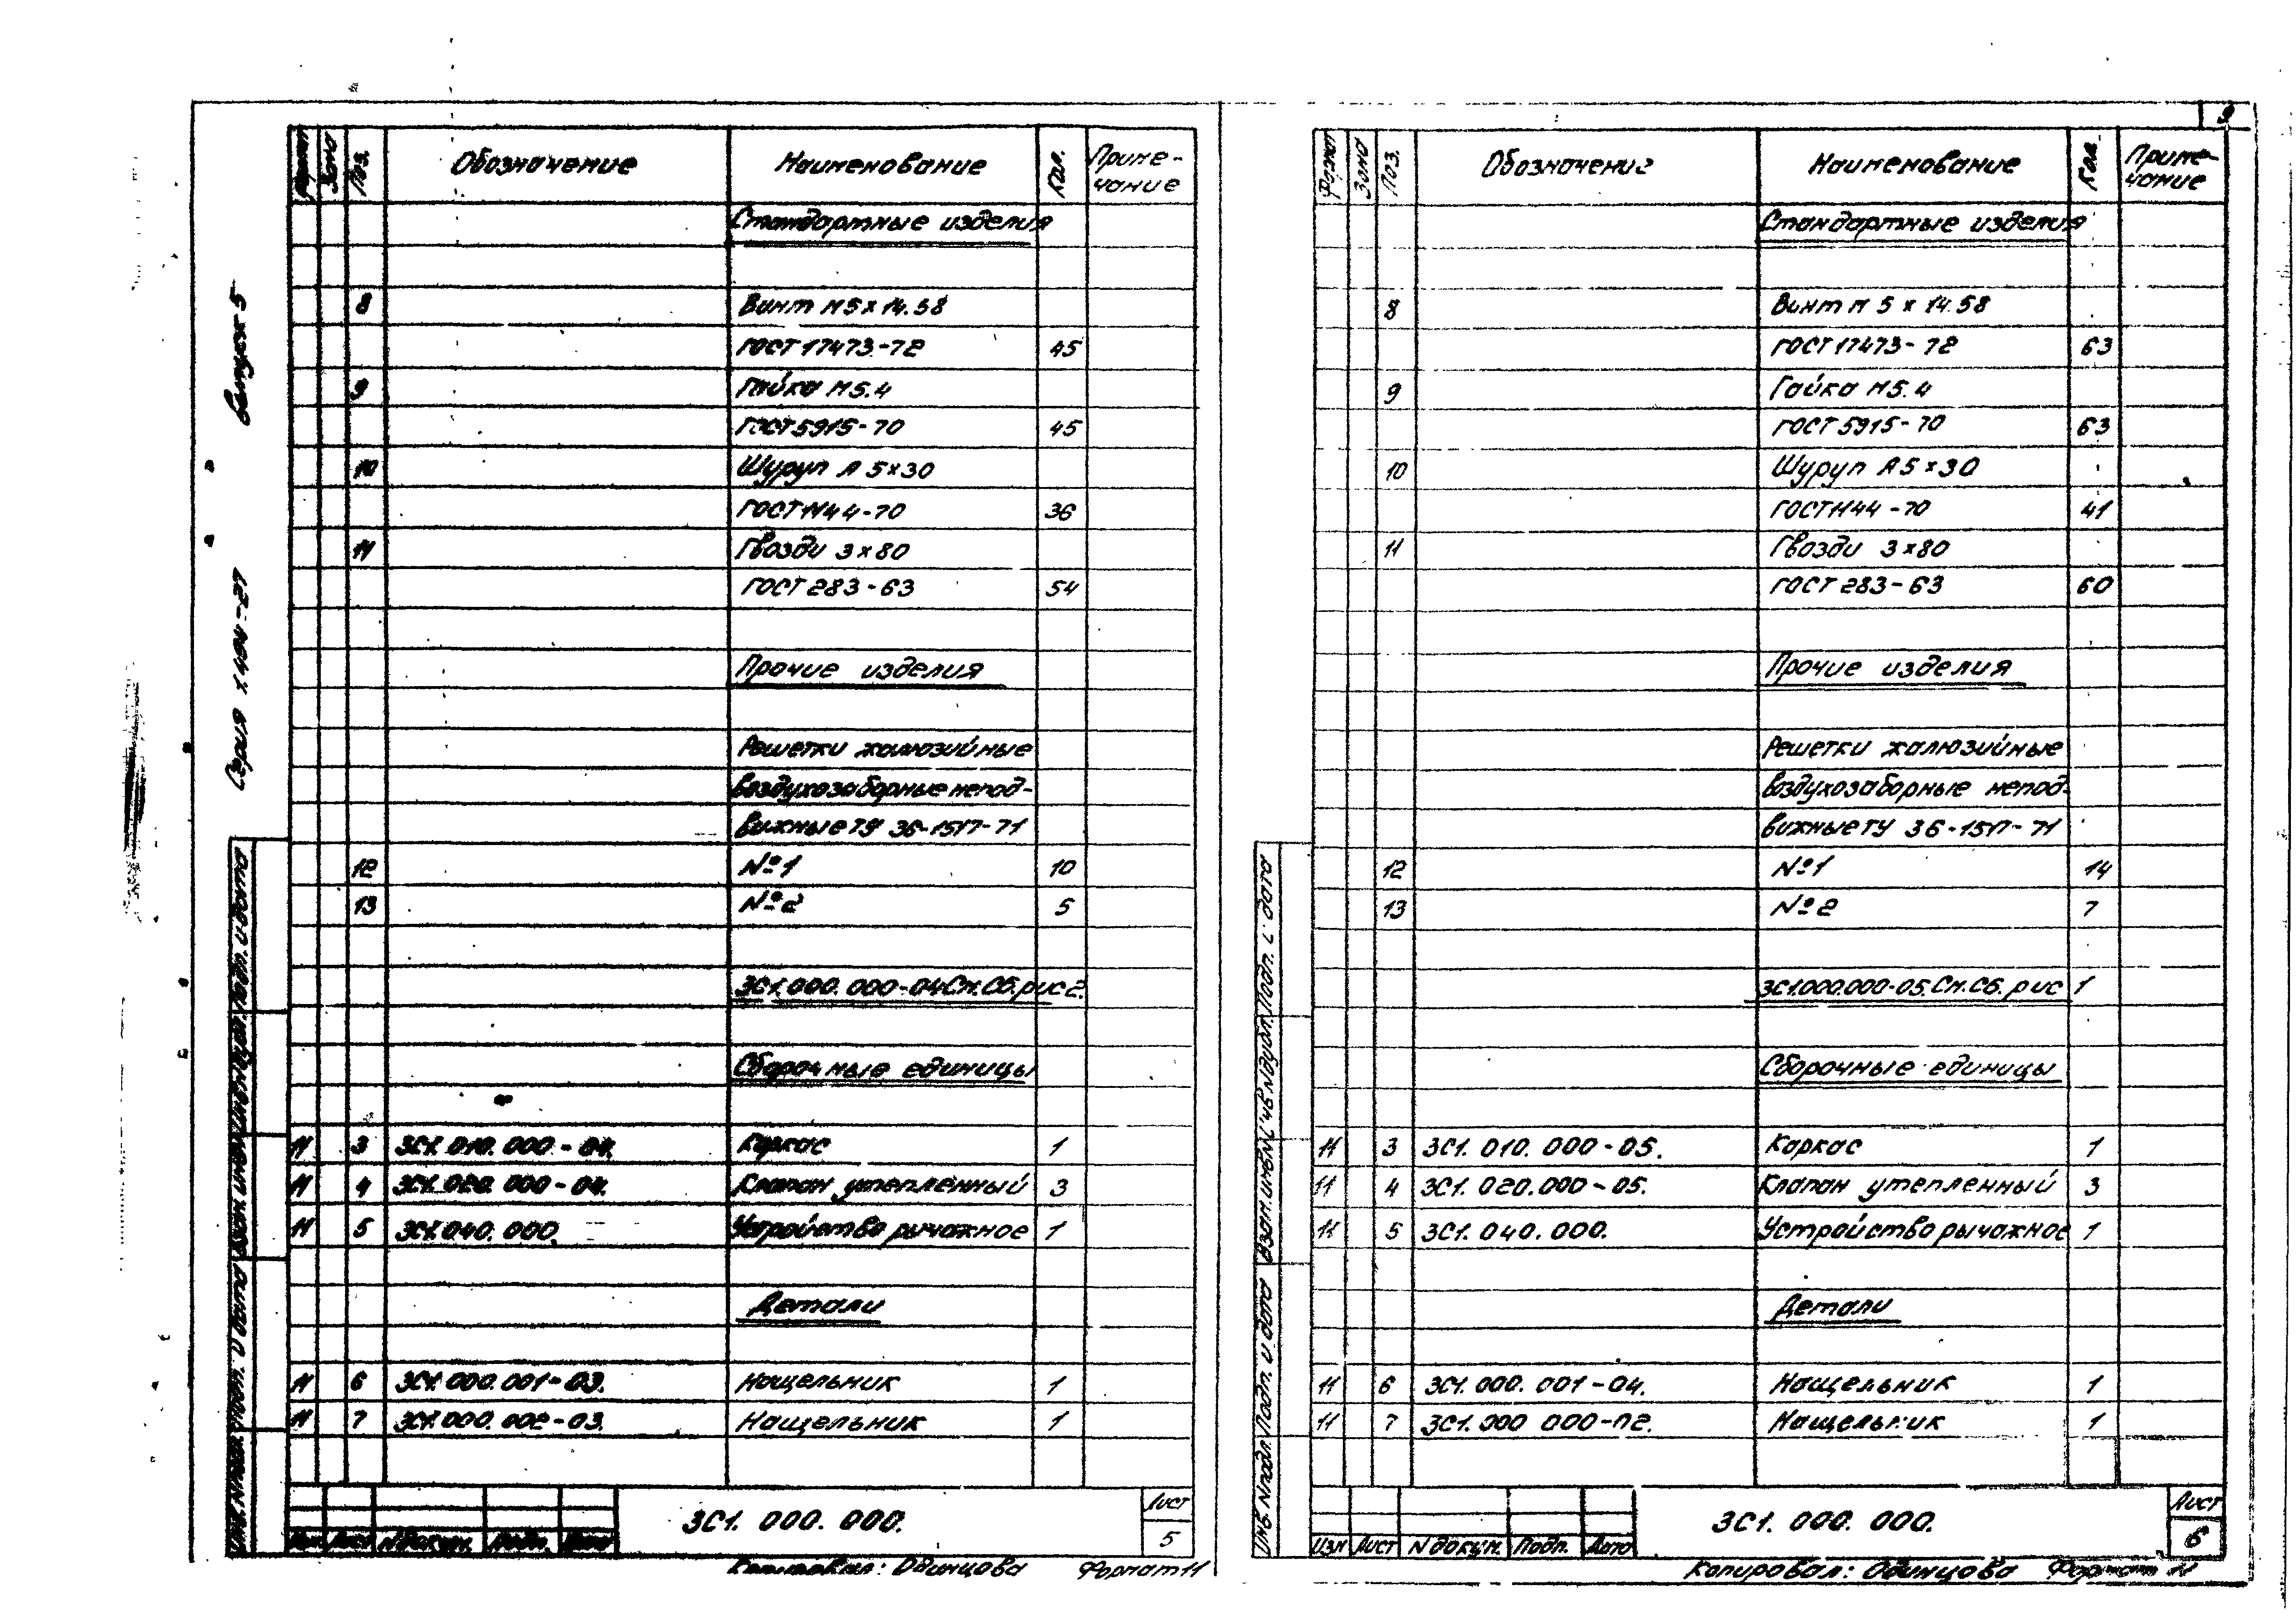 9
Выпуск 5
Серия 1.494-27
Формат Зона Поз. Обозначение Наименование Кол. Приме-
чание
Стандартные изделия
8 Винт М5х14.58
ГОСТ 17473-72 45
9 Гайка М5.4
ГОСТ 5915-70 45
10 Шуруп А 5х30
ГОСТ 1144-70 36
11 Гвозди 3х80
ГОСТ 283-63 54
Прочие изделия
Решетки жалюзийные
воздухозаборные непод-
вижные ТУ 36-1517-71
12 №1 10
13 №2 5
ЗС1.000.000-04 См.Сб.рис 2.
Сборочные единицы
11 3 ЗС1.010.000-04. Каркас 1
11 4 ЗС1.020.000-04. Клапан утепленный 3
11 5 ЗС1.040.000. Устройство рычажное 1
Детали
11 6 ЗС1.000.001-03. Нащельник 1
11 7 ЗС1.000.002-03. Нащельник 1
Изм Лист N докум. Подп. Дата
ЗС1. 000. 000.
Лист
5
Копировал: Одинцова Формат 11
Подп. и дата
Подп. и дата
Инв. N подл.
Формат Зона Поз. Обозначение Наименование Кол. Приме-
чание
Стандартные изделия
8 Винт М 5 х 14.58
ГОСТ 17473-72 63
9 Гайка М5.4
ГОСТ 5915-70 63
10 Шуруп А5х30
ГОСТ 1144-70 41
11 Гвозди 3х80
ГОСТ 283-63 60
Прочие изделия
Решетки жалюзийные
воздухозаборные непод-
вижные ТУ 36-1517-71
12 №1 14
13 №2 7
ЗС1.000.000-05.См.Сб.рис 1
Сборочные единицы
11 3 ЗС1. 010. 000-05. Каркас 1
11 4 ЗС1. 020.000-05. Клапан утепленный 3
11 5 ЗС1. 040. 000. Устройство рычажное 1
Детали
11 6 ЗС1. 000. 001-04. Нащельник 1
11 7 ЗС1. 000 000-02. Нащельник 1
Изм Лист N докум. Подп. Дата
ЗС1. 000. 000.
Лист
6
Копировал: Одинцова Формат 11
Подп. и дата
Инв N дубл.
Взам. инв N
Подп. и дата
Инв. N подл.